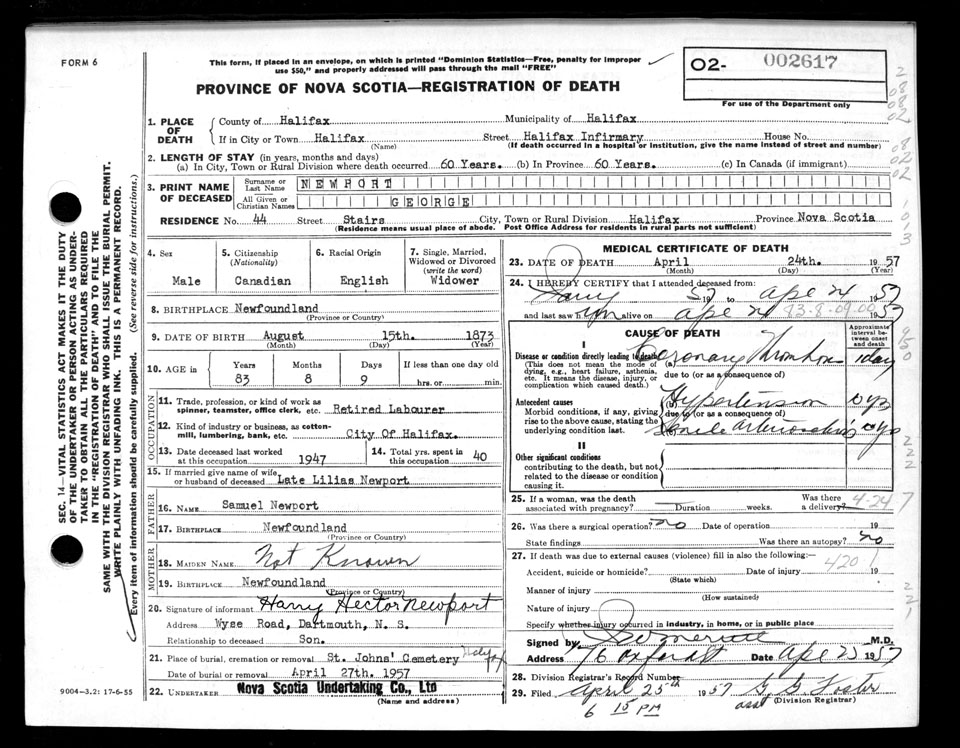 FORM 6
This form, if placed in an envelope, on which is printed "Dominion Statistics—Free, penalty for improper
use $50," and properly addressed will pass through the mail "FREE"
O2- 002617
For use of the Department only
PROVINCE OF NOVA SCOTIA—REGISTRATION OF DEATH
1. PLACE OF DEATH
County of Halifax Municipality of Halifax
If in City or Town Halifax Street Halifax Infirmary House No.
(Name) (If death occurred in a hospital or institution, give the name instead of street and number)
2. LENGTH OF STAY (in years, months and days)
(a) In City, Town or Rural Division where death occurred 60 Years. (b) In Province 60 Years. (c) In Canada (if immigrant)
3. PRINT NAME OF DECEASED
Surname or Last Name NEWPORT
All Given or Christian Names GEORGE
RESIDENCE No. 44 Street Stairs City, Town or Rural Division Halifax Province Nova Scotia
(Residence means usual place of abode. Post Office Address for residents in rural parts not sufficient)
4. Sex
Male
5. Citizenship
(Nationality)
Canadian
6. Racial Origin
English
7. Single, Married,
Widowed or Divorced
(write the word)
Widower
8. BIRTHPLACE Newfoundland
(Province or Country)
9. DATE OF BIRTH August 15th. 1873
(Month) (Day) (Year)
10. AGE in
Years Months Days If less than one day old
83 8 9 hrs. or min.
OCCUPATION
11. Trade, profession, or kind of work as
spinner, teamster, office clerk, etc. Retired Labourer
12. Kind of industry or business, as cotton-
mill, lumbering, bank, etc. City Of Halifax.
13. Date deceased last worked
at this occupation 1947
14. Total yrs. spent in
this occupation 40
15. If married give name of wife
or husband of deceased Late Lilias Newport
FATHER
16. NAME Samuel Newport
17. BIRTHPLACE Newfoundland
(Province or Country)
MOTHER
18. MAIDEN NAME Not Known
19. BIRTHPLACE Newfoundland
(Province or Country)
20. Signature of informant Harry Hector Newport
Address Wyse Road, Dartmouth, N. S.
Relationship to deceased Son.
21. Place of burial, cremation or removal St. Johns' Cemetery Halifax
Date of burial or removal April 27th. 1957
22. UNDERTAKER Nova Scotia Undertaking Co., Ltd
(Name and address)
MEDICAL CERTIFICATE OF DEATH
23. DATE OF DEATH April 24th. 1957
(Month) (Day) (Year)
24. I HEREBY CERTIFY that I attended deceased from:
57 to Apr 24 1957
and last saw him alive on Apr 24 1957
83-8-09-00
CAUSE OF DEATH
Approximate interval between onset and death
I
Disease or condition directly leading to death (a) Coronary Thrombosis 1 day
(This does not mean the mode of dying, e.g., heart failure, asthenia, etc. It means the disease, injury, or complication which caused death.)
due to (or as a consequence of)
Antecedent causes (b) Hypertension
Morbid conditions, if any, giving rise to the above cause, stating the underlying condition last.
due to (or as a consequence of)
Senile
II
Other significant conditions
contributing to the death, but not
related to the disease or condition
causing it.
25. If a woman, was the death
associated with pregnancy? Duration weeks. Was there a delivery?
4-24 7
26. Was there a surgical operation? no Date of operation 19
State findings Was there an autopsy? no
27. If death was due to external causes (violence) fill in also the following:—
Accident, suicide or homicide? Date of injury 19
420 1
(State which)
Manner of injury
(How sustained)
Nature of injury
Specify whether injury occurred in industry, in home, or in public place
Signed by M.D.
Address 76 Oxford St Date Apr 25 1957
28. Division Registrar's Record Number
29. Filed April 25th 1957 G. G. Foster
6 15 PM asst (Division Registrar)
9004—3.2: 17-6-55
SEC. 14—VITAL STATISTICS ACT MAKES IT THE DUTY
OF THE UNDERTAKER OR PERSON ACTING AS UNDER-
TAKER TO OBTAIN ALL THE PARTICULARS REQUIRED
IN THE "REGISTRATION OF DEATH" AND TO FILE THE
SAME WITH THE DIVISION REGISTRAR WHO SHALL ISSUE THE BURIAL PERMIT.
WRITE PLAINLY WITH UNFADING INK. THIS IS A PERMANENT RECORD.
Every item of information should be carefully supplied. (See reverse side for instructions.)